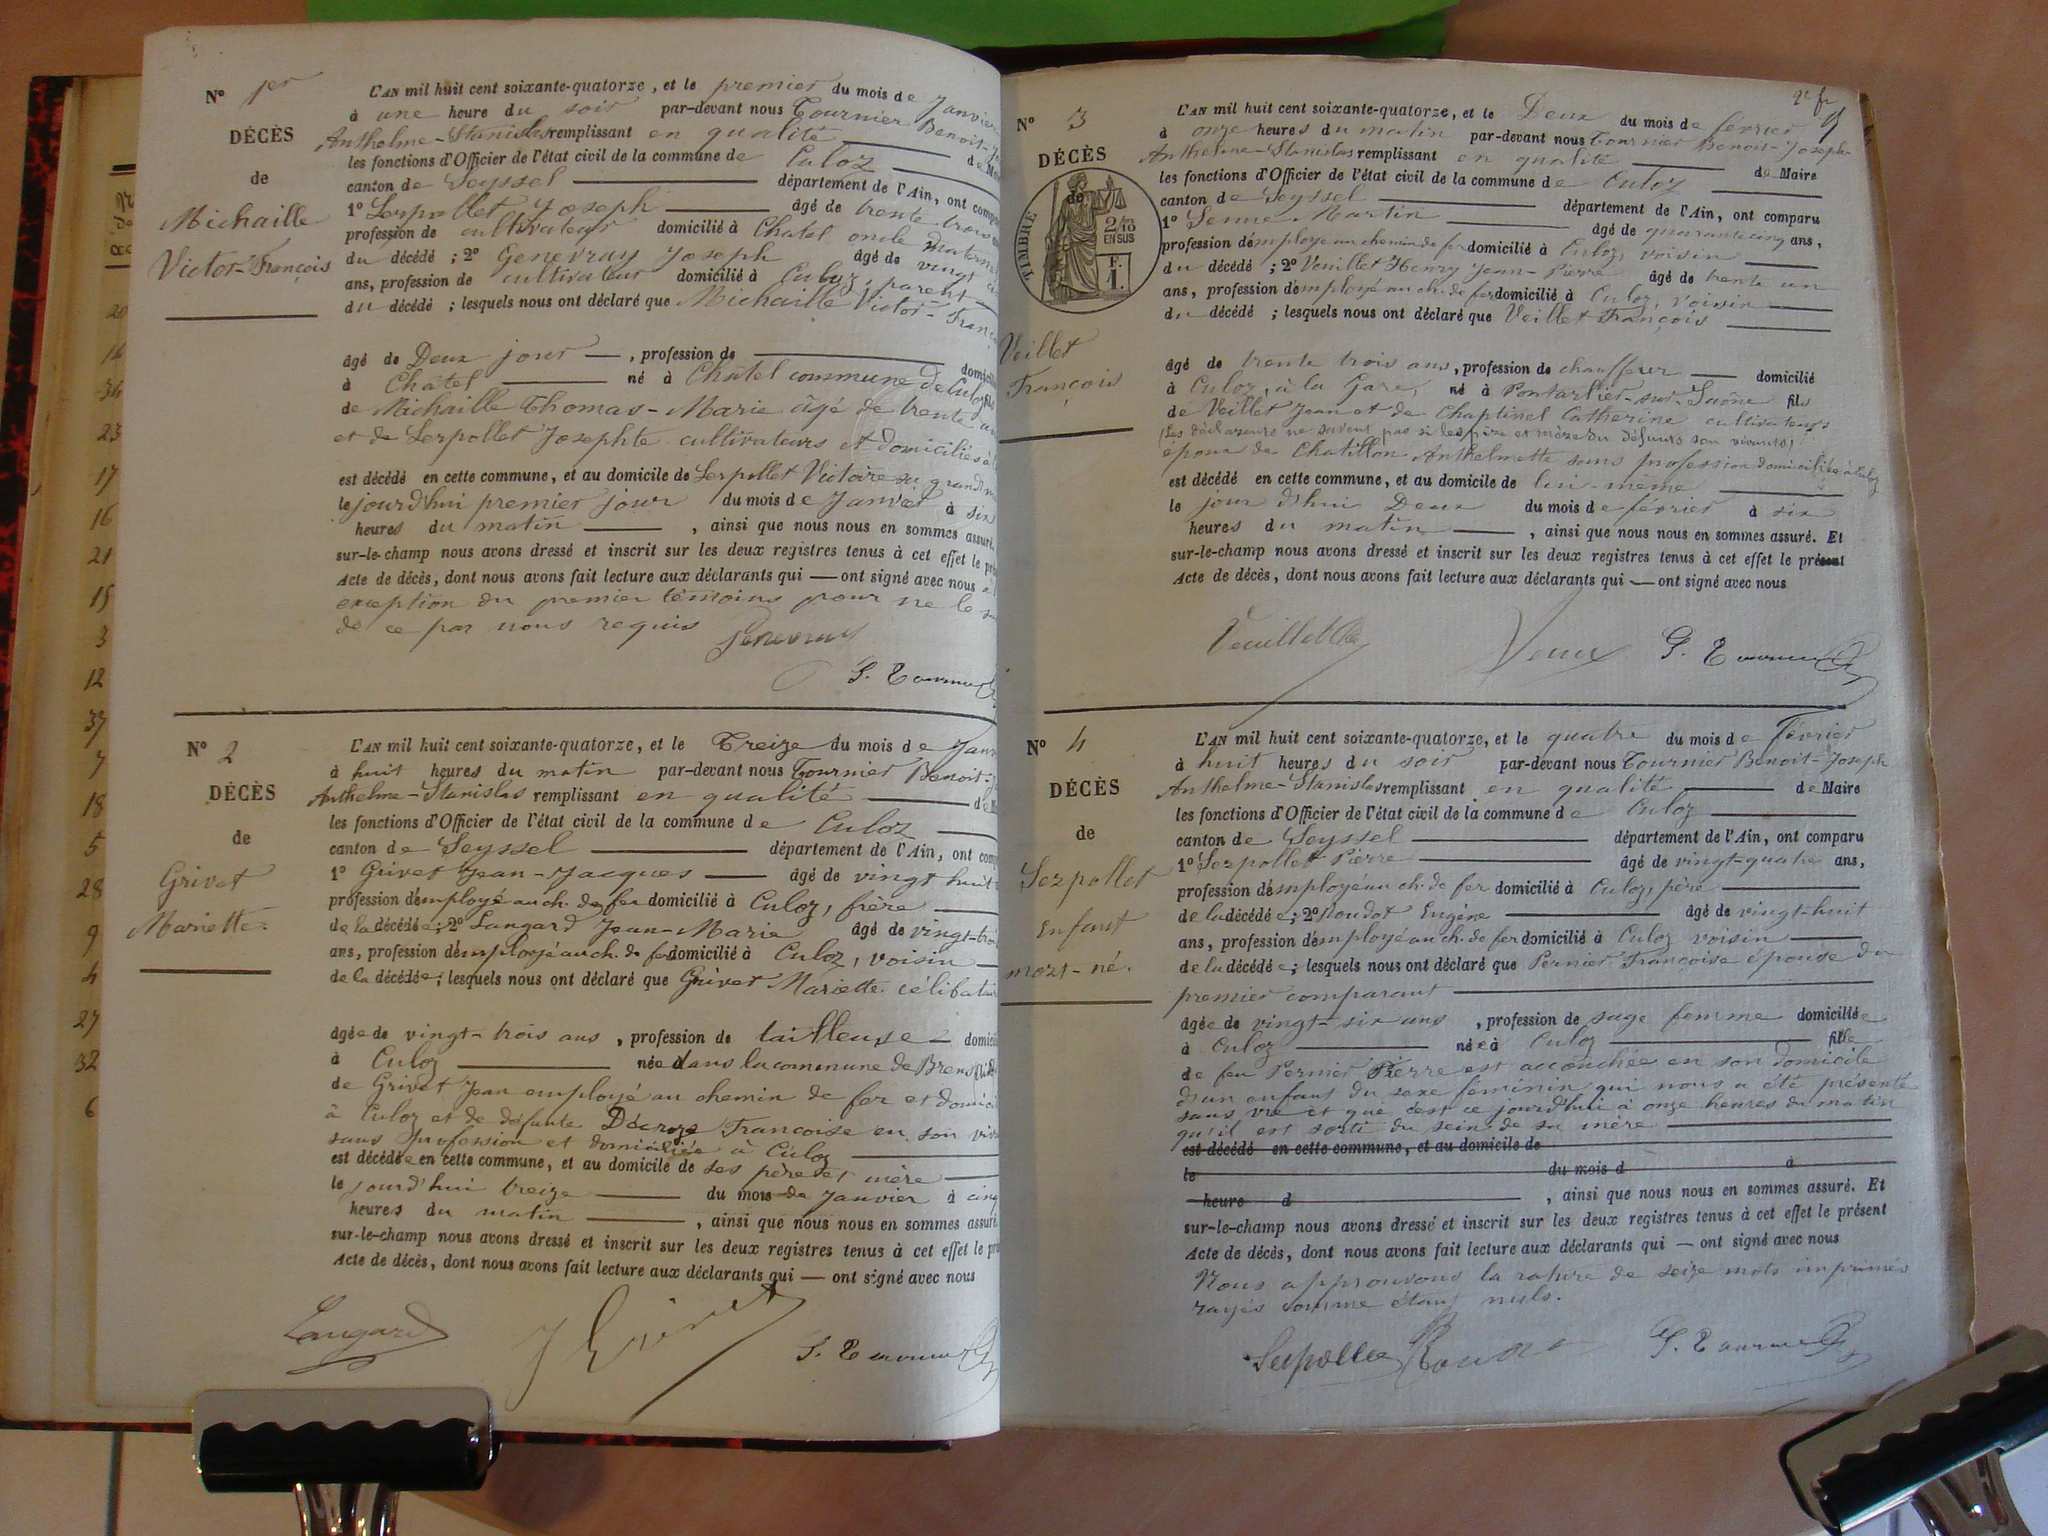 N° 1er
DÉCÈS
de
Michaille
Victor-François
L'AN mil huit cent soixante-quatorze, et le premier du mois de Janvier
à une heure du soir par-devant nous Tournier Benoit-
Anthelme-Stanislas remplissant en qualité de
les fonctions d'Officier de l'état civil de la commune de Culoz
canton de Seyssel département de l'Ain, ont
1° Serpollet Joseph âgé de trente trois
profession de cultivateur domicilié à Chatel oncle
du décédé ; 2° Genevray Joseph âgé de vingt
ans, profession de cultivateur domicilié à Culoz, parent
du décédé ; lesquels nous ont déclaré que Michaille Victor-
âgé de Deux jours, profession de
à Châtel né à Châtel commune de Culoz
de Michaille Thomas-Marie âgé de trente
et de Serpollet Josephte cultivateurs et domiciliés à
est décédé en cette commune, et au domicile de Serpollet Victoire sa
le jourd'hui premier jour du mois de Janvier à six
heures du matin, ainsi que nous nous en sommes assuré.
sur-le-champ nous avons dressé et inscrit sur les deux registres tenus à cet effet le
Acte de décès, dont nous avons fait lecture aux déclarants qui — ont signé avec nous
exception du premier témoins pour ne le
de ce par nous requis Genevray
N° 2
DÉCÈS
de
Grivet
Mariette
L'AN mil huit cent soixante-quatorze, et le Treize du mois de
à huit heures du matin par-devant nous Tournier Benoit-
Anthelme-Stanislas remplissant en qualité
les fonctions d'Officier de l'état civil de la commune de Culoz
canton de Seyssel département de l'Ain, ont
1° Grivet Jean-Jacques âgé de vingt huit
profession d'employé au ch. de fer domicilié à Culoz, frère
de la décédée ; 2° Langard Jean-Marie âgé de
ans, profession d'employé au ch. de fer domicilié à Culoz, voisin
de la décédée ; lesquels nous ont déclaré que Grivet Mariette
âgée de vingt-trois ans, profession de tailleuse
à Culoz née dans la commune de Brens
de Grivet Jean employé au chemin de fer et
à Culoz et de défunte Décroze Françoise en son
sans profession et domiciliée à Culoz
est décédée en cette commune, et au domicile de ses père et mère
le jourd'hui treize du mois de Janvier à cinq
heures du matin, ainsi que nous nous en sommes assuré
sur-le-champ nous avons dressé et inscrit sur les deux registres tenus à cet effet le
Acte de décès, dont nous avons fait lecture aux déclarants qui — ont signé avec nous
Langard
N° 3
DÉCÈS
de
TIMBRE
2/10
EN SUS
F.
1.
Veillet
François
L'AN mil huit cent soixante-quatorze, et le Deux du mois de février
à onze heures du matin par-devant nous Tournier Benoit-Joseph
Anthelme-Stanislas remplissant en qualité de Maire
les fonctions d'Officier de l'état civil de la commune de Culoz
canton de Seyssel département de l'Ain, ont comparu
1° Martin âgé de quarante cinq ans,
profession d'employé au chemin de fer domicilié à Culoz, voisin
du décédé ; 2° Veuillet Henry Jean-Pierre âgé de trente un
ans, profession d'employé au ch. de fer domicilié à Culoz, voisin
du décédé ; lesquels nous ont déclaré que Veillet François
âgé de trente trois ans, profession de chauffeur domicilié
à Culoz, à la Gare, né à Pontarlier-sur-Saône fils
de Veillet Jean et de Catherine cultivateurs
(Les déclarants ne savent pas si les père et mère du défunt son vivants)
époux de Chatillon Anthelmette sans profession domiciliée à Culoz
est décédé en cette commune, et au domicile de lui-même
le jour d'hui Deux du mois de février à six
heures du matin, ainsi que nous nous en sommes assuré. Et
sur-le-champ nous avons dressé et inscrit sur les deux registres tenus à cet effet le présent
Acte de décès, dont nous avons fait lecture aux déclarants qui — ont signé avec nous
N° 4
DÉCÈS
de
Serpollet
Enfant
mort-né.
L'AN mil huit cent soixante-quatorze, et le quatre du mois de février
à huit heures du soir par-devant nous Tournier Benoit-Joseph
Anthelme-Stanislas remplissant en qualité de Maire
les fonctions d'Officier de l'état civil de la commune de Culoz
canton de Seyssel département de l'Ain, ont comparu
1° Serpollet Pierre âgé de vingt-quatre ans,
profession d'employé au ch. de fer domicilié à Culoz, père
de la décédée ; 2° Eugène âgé de vingt-huit
ans, profession d'employé au ch. de fer domicilié à Culoz voisin
de la décédée ; lesquels nous ont déclaré que Pernier Françoise épouse du
premier comparant
âgée de vingt-six ans, profession de sage femme domiciliée
à Culoz née à Culoz fille
de feu Pernier Pierre est accouchée en son domicile
d'un enfant du sexe féminin qui nous a été présenté
sans vie et que c'est ce jourd'hui à onze heures du matin
qu'il est sorti du sein de sa mère
est décédé en cette commune, et au domicile de
le du mois d à
heure d, ainsi que nous nous en sommes assuré. Et
sur-le-champ nous avons dressé et inscrit sur les deux registres tenus à cet effet le présent
Acte de décès, dont nous avons fait lecture aux déclarants qui — ont signé avec nous
Nous approuvons la rature de seize mots imprimés
rayés comme étant nuls.